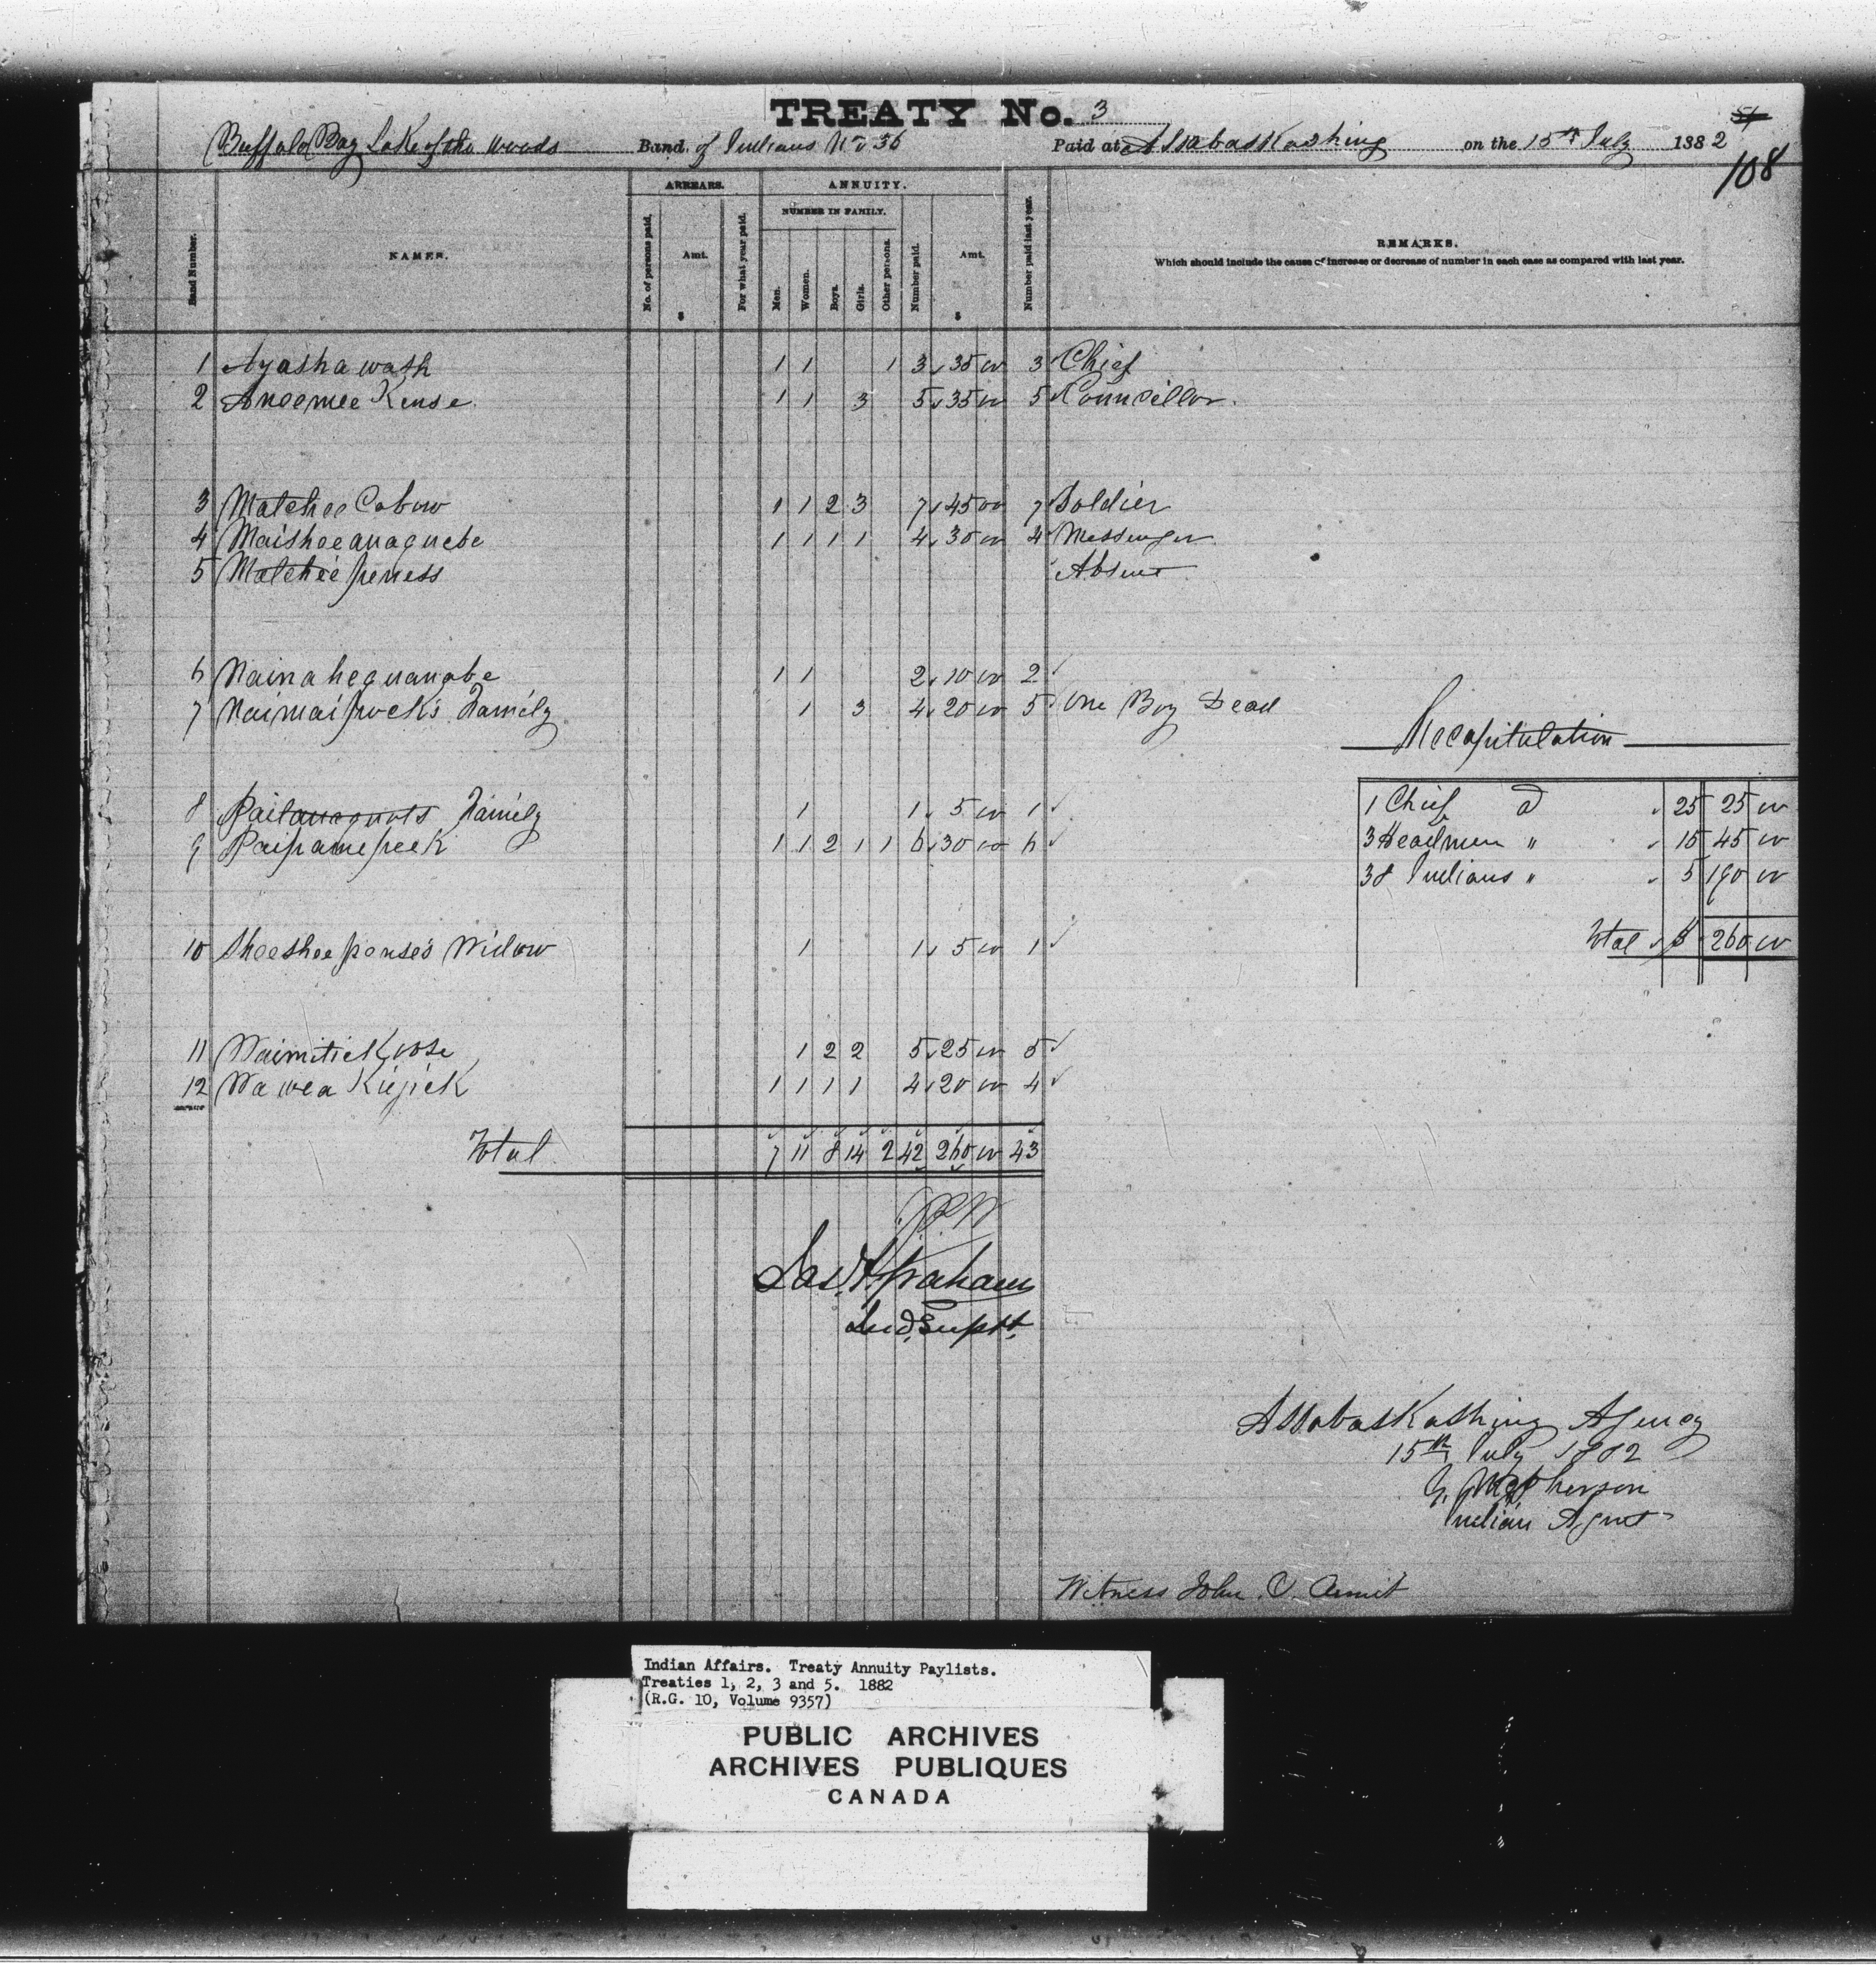 TREATY No. 3
54
Buffalo Bay Lake of the Woods Band of Indians No 36 Paid at Assabaskashing on the 15th July 1882
108
Band Number. NAMES. ARREARS. No. of persons paid. Amt. $ For what year paid. ANNUITY. NUMBER IN FAMILY. Men. Women. Boys. Girls. Other persons. Number paid. Amt. $ Number paid last year. REMARKS.
Which should include the cause of increase or decrease of number in each case as compared with last year.
1 Ayashawash 1 1 1 3 35 00 3 Chief
2 Aneemee Kense 1 1 3 5 35 00 5 Councillor.
3 Matchee Cabow 1 1 2 3 7 45 00 7 Soldier
4 Maisheeanaquebe 1 1 1 1 4 30 00 4 Messenger
5 Matchee peness Absent
6 Nainahequanabe 1 1 2 10 00 2
7 Naimaipock's Family 1 3 4 20 00 5 One Boy Dead
Recapitulation
8 Paitauaquots Family 1 1 5 00 1
9 Paipamepeek 1 1 2 1 1 6 30 00 6
1 Chief @ 25 25 00
3 Headmen " 15 45 00
38 Indians " 5 190 00
Total $ 260 00
10 Sheeshee pense's Widow 1 1 5 00 1
11 Waimitickoose 1 2 2 5 25 00 5
12 Wawea Kiejick 1 1 1 1 4 20 00 4
Total 7 11 8 14 2 42 260 00 43
Jas. F. Graham
Ind. Supt.
Assabaskashing Agency
15th July 1882
G. McPherson
Indian Agent
Witness John C. Asmit
Indian Affairs. Treaty Annuity Paylists.
Treaties 1, 2, 3 and 5. 1882
(R.G. 10, Volume 9357)
PUBLIC ARCHIVES
ARCHIVES PUBLIQUES
CANADA